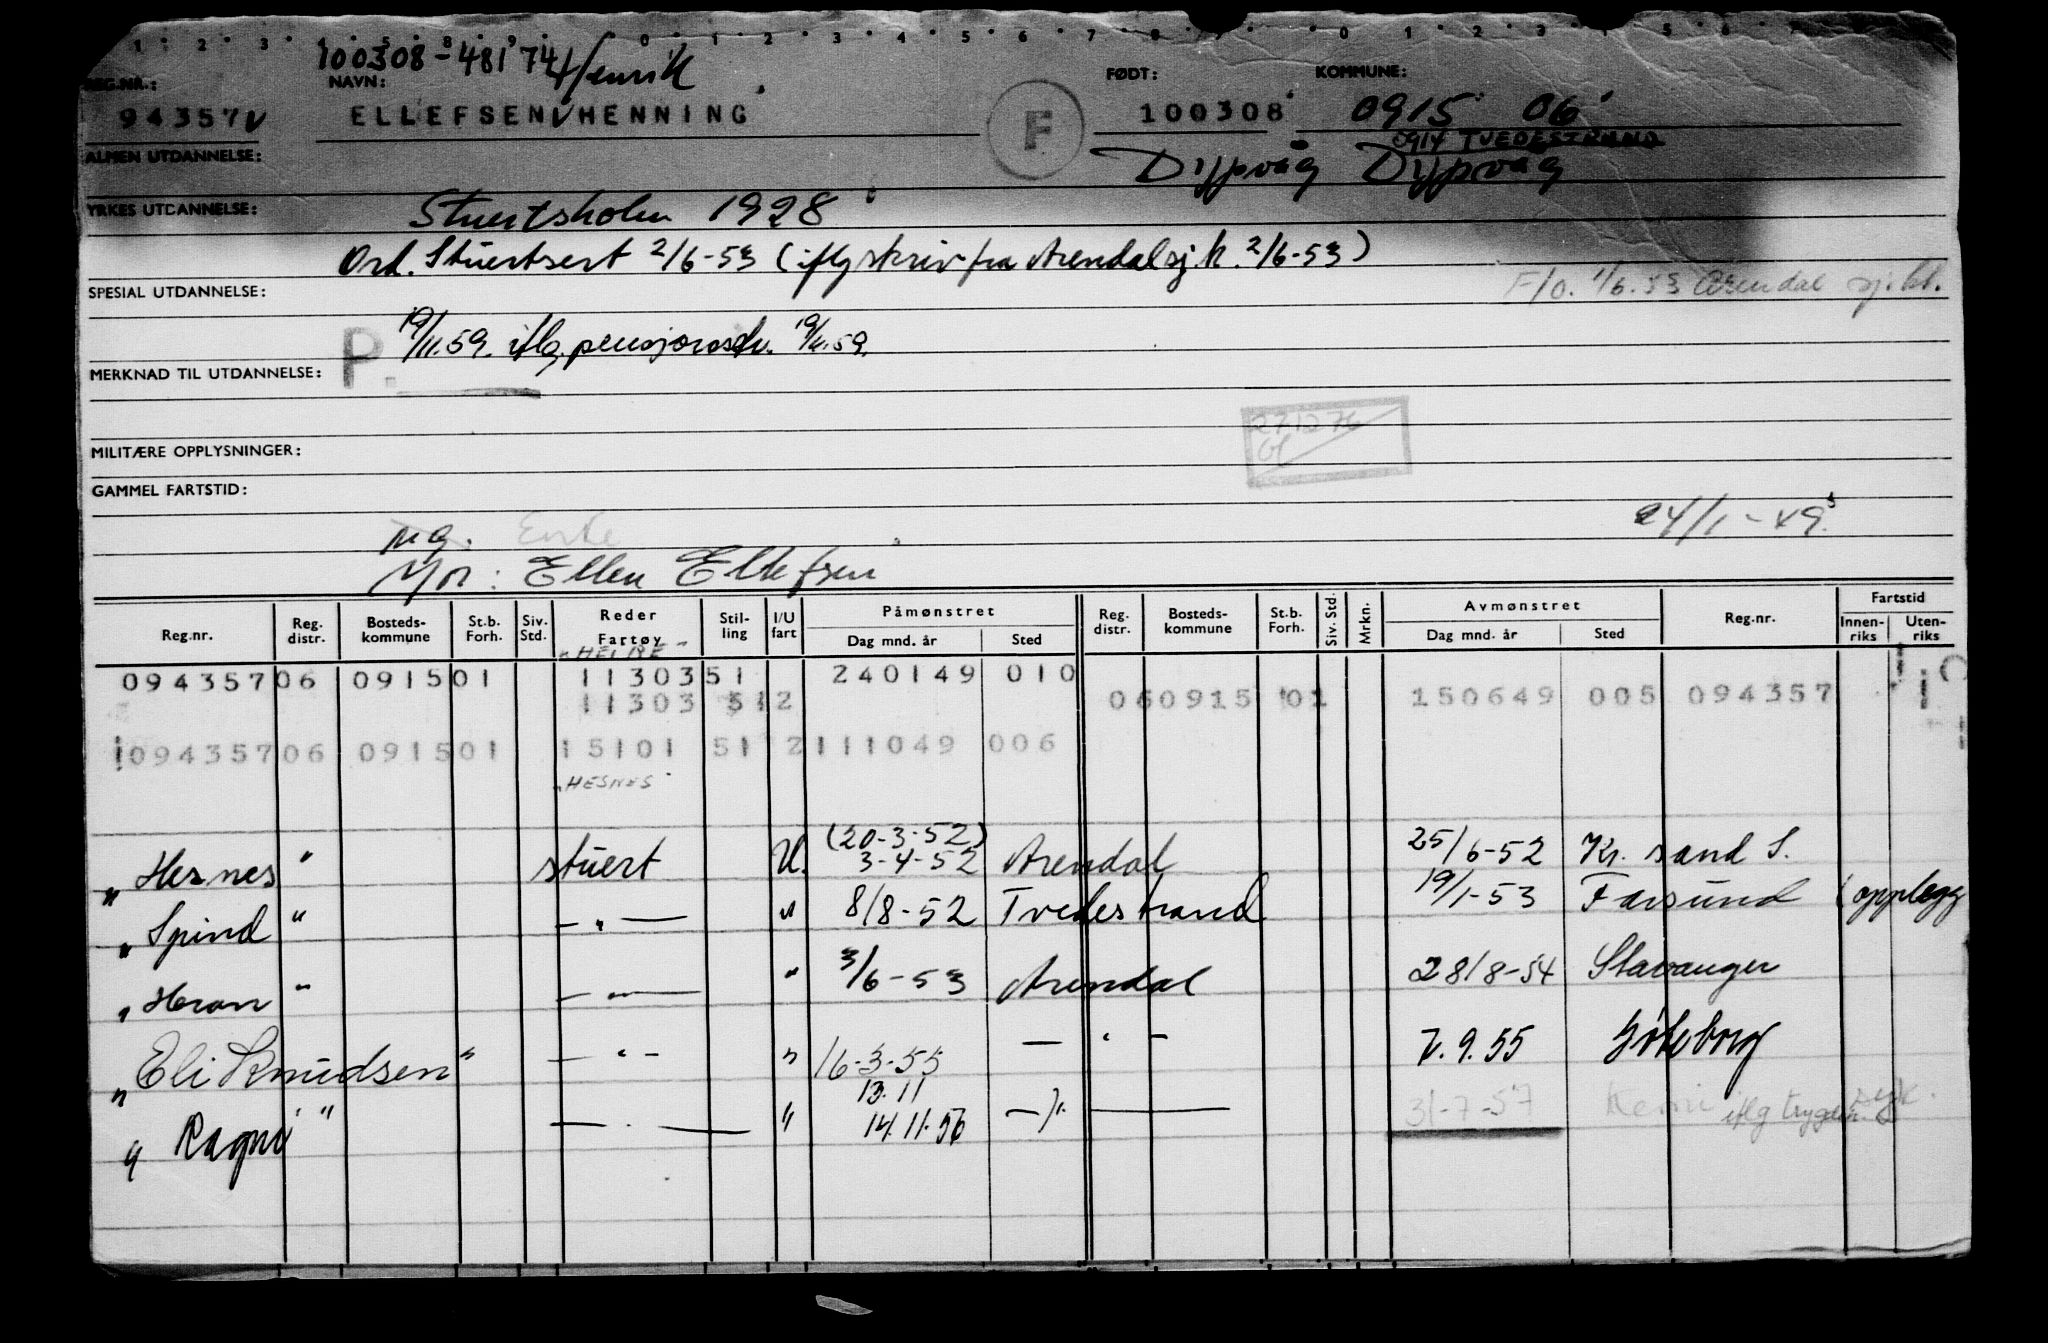 1 2 3 5 8 9 0 1 2 3 4 5 6 7 8 0 1 2 3 4 5 6 7
100308-48174 Henrik
REG.NR.: NAVN: FØDT: KOMMUNE:
94357 ELLEFSEN HENNING F 100308 0915 06
0914 TVEDESTRAND
ALMEN UTDANNELSE: Dypvåg Dypvåg
YRKES UTDANNELSE: Stuertskolen 1928
Ord. Stuertsert 2/6-53 (iflg skriv fra Arendal sj.k. 2/6-53)
SPESIAL UTDANNELSE: F/o. 1/6.53 Arendal sj.kt.
P. 19/11.59. iflg. pensjonsskr. 19/11.59.
MERKNAD TIL UTDANNELSE:
271276
MILITÆRE OPPLYSNINGER:
GAMMEL FARTSTID:
24/1-49
ug. Enke
Mor: Ellen Ellefsen
Reg.nr. Reg. distr. Bosteds-kommune St.b. Forh. Siv. Std. Reder Fartøy Stil-ling I/U fart Påmønstret Dag mnd. år Sted Reg. distr. Bosteds-kommune St.b. Forh. Siv. Std. Mrkn. Avmønstret Dag mnd. år Sted Reg.nr. Fartstid Innen-riks Uten-riks
094357 06 0915 01 11303 51 240149 010
11303 51 2 06 0915 01 150649 005 094357
094357 06 0915 01 15101 51 2 111049 006
"HESNES"
"Hesnes" stuert U. (20-3-52) 3-4-52 Arendal 25/6-52 Kr. sand S.
"Spind" — " — " 8/8-52 Tvedestrand 19/1-53 Farsund (opplegg
"Heran" — " — " 3/6-53 Arendal 28/8-54 Stavanger
"Eli Knudsen" — " — " 16-3-55 — " — 7.9.55 Göteborg
13.11
"Ragni" — " — " 14.11.56 — " — 31-7-57 Kemi iflg trygden. syk.